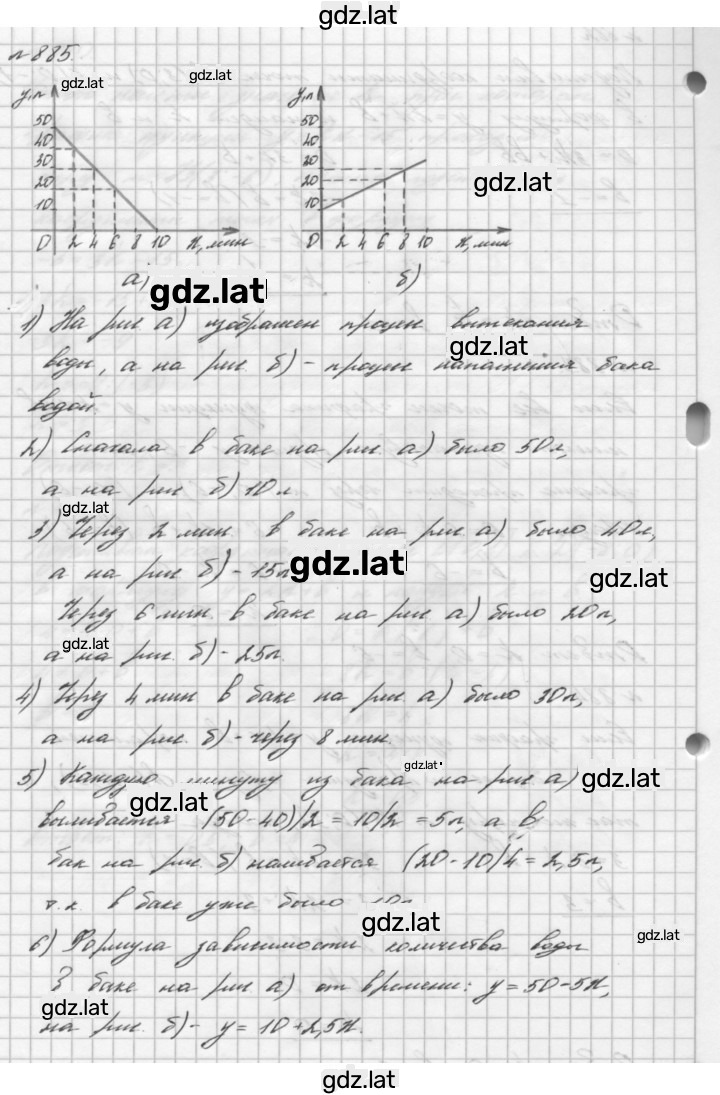 gdz.lat
№885.
gdz.lat
gdz.lat
y, л
50
40
30
20
10
0 2 4 6 8 10 x, мин
а)
y, л
50
40
30
20
10
0 2 4 6 8 10 x, мин
б)
gdz.lat
gdz.lat
1) На рис а) изображен процесс вытекания
gdz.lat
воды, а на рис. б) - процесс наполнения бака
водой.
2) Сначала в баке на рис. а) было 50 л,
а на рис б) 10 л
gdz.lat
3) Через 2 мин. в баке на рис а) было 40л,
а на рис б) - 15л
gdz.lat
gdz.lat
Через 6 мин. в баке на рис а) было 20л,
gdz.lat
а на рис. б) - 25л.
4) Через 4 мин в баке на рис а) было 30л,
а на рис. б) - через 8 мин.
gdz.lat
5) Каждую минуту из бака на рис а)
gdz.lat
gdz.lat
выливается (50-40)/2 = 10/2 = 5л, а в
бак на рис б) наливается (20-10)/4 = 2,5л,
т.к. в баке уже было 10л
gdz.lat
gdz.lat
6) Формула зависимости количества воды
в баке на рис а) от времени: y = 50-5x,
gdz.lat
на рис. б) - y = 10+2,5x.
gdz.lat